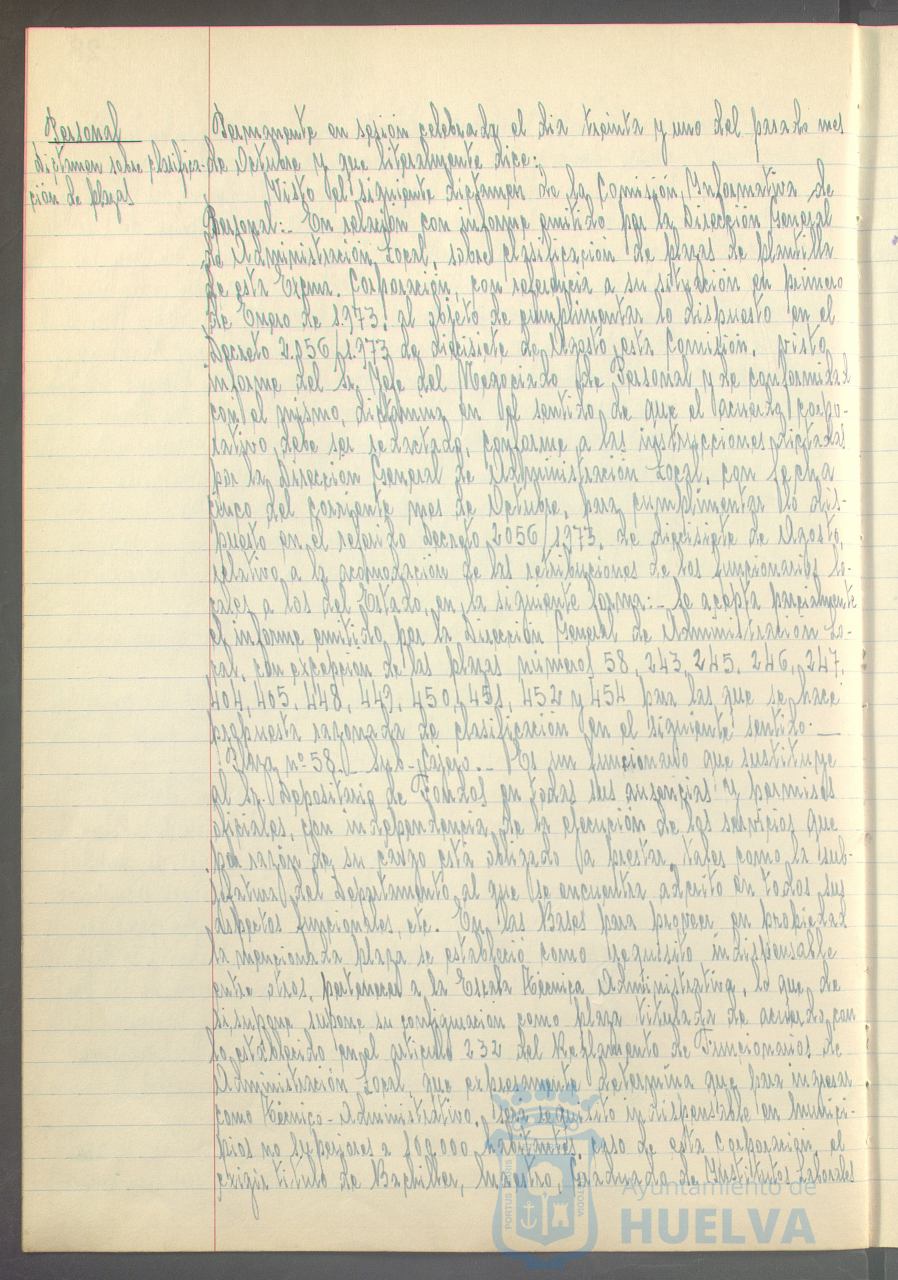 Personal
dictamen sobre clasifica-
ción de plazas
Permanente en sesión celebrada el dia treinta y uno del pasado mes
de Octubre y que literalmente dice:
Visto el siguiente dictamen de la Comisión Informativa de
Personal:- En relación con informe emitido por la Dirección General
de Administración Local, sobre clasificación de plazas de plantilla
de esta Excma. Corporación, con referencia a su situación en primero
de Enero de 1.973, al objeto de cumplimentar lo dispuesto en el
Decreto 2.056/1.973 de diecisiete de Agosto, esta Comisión, visto
informe del Sr. Jefe del Negociado de Personal y de conformidad
con el mismo, dictamina en el sentido de que el acuerdo corpo-
rativo debe ser redactado, conforme a las instrucciones dictadas
por la Dirección General de Administración Local, con fecha
cinco del corriente mes de Octubre, para cumplimentar lo dis-
puesto en el referido Decreto 2056/1.973, de diecisiete de Agosto,
relativo a la acomodación de las retribuciones de los funcionarios lo-
cales a los del Estado, en la siguiente forma:- Se acepta parcialmente
el informe emitido por la Dirección General de Administración Lo-
cal, con excepción de las plazas números 58, 243, 245, 246, 247,
404, 405, 448, 449, 450, 451, 452 y 454 para las que se hace
propuesta razonada de clasificación en el siguiente sentido.-
Plaza nº 58.- Sub-Cajero.- Es un funcionario que sustituye
al Sr. Depositario de Fondos en todas sus ausencias y permisos
oficiales, con independencia de la ejecución de los servicios que
por razón de su cargo está obligado a prestar, tales como la sub-
jefatura del Departamento al que se encuentra adscrito en todos sus
aspectos funcionales, etc. En las Bases para proveer en propiedad
la mencionada plaza se estableció como requisito indispensable
entre otros, pertenecer a la Escala Técnica Administrativa, lo que de
si supone supone su configuración como plaza titulada de acuerdo con
lo establecido en el artículo 232 del Reglamento de Funcionarios de
Administración Local, que expresamente determina que para ingresar
como Técnico-Administrativo, será requisito indispensable en Munici-
pios no superiores a 100.000 habitantes, caso de esta corporación, el
exigir titulo de Bachiller, Maestro, Graduado de Institutos Laborales
Ayuntamiento de
HUELVA